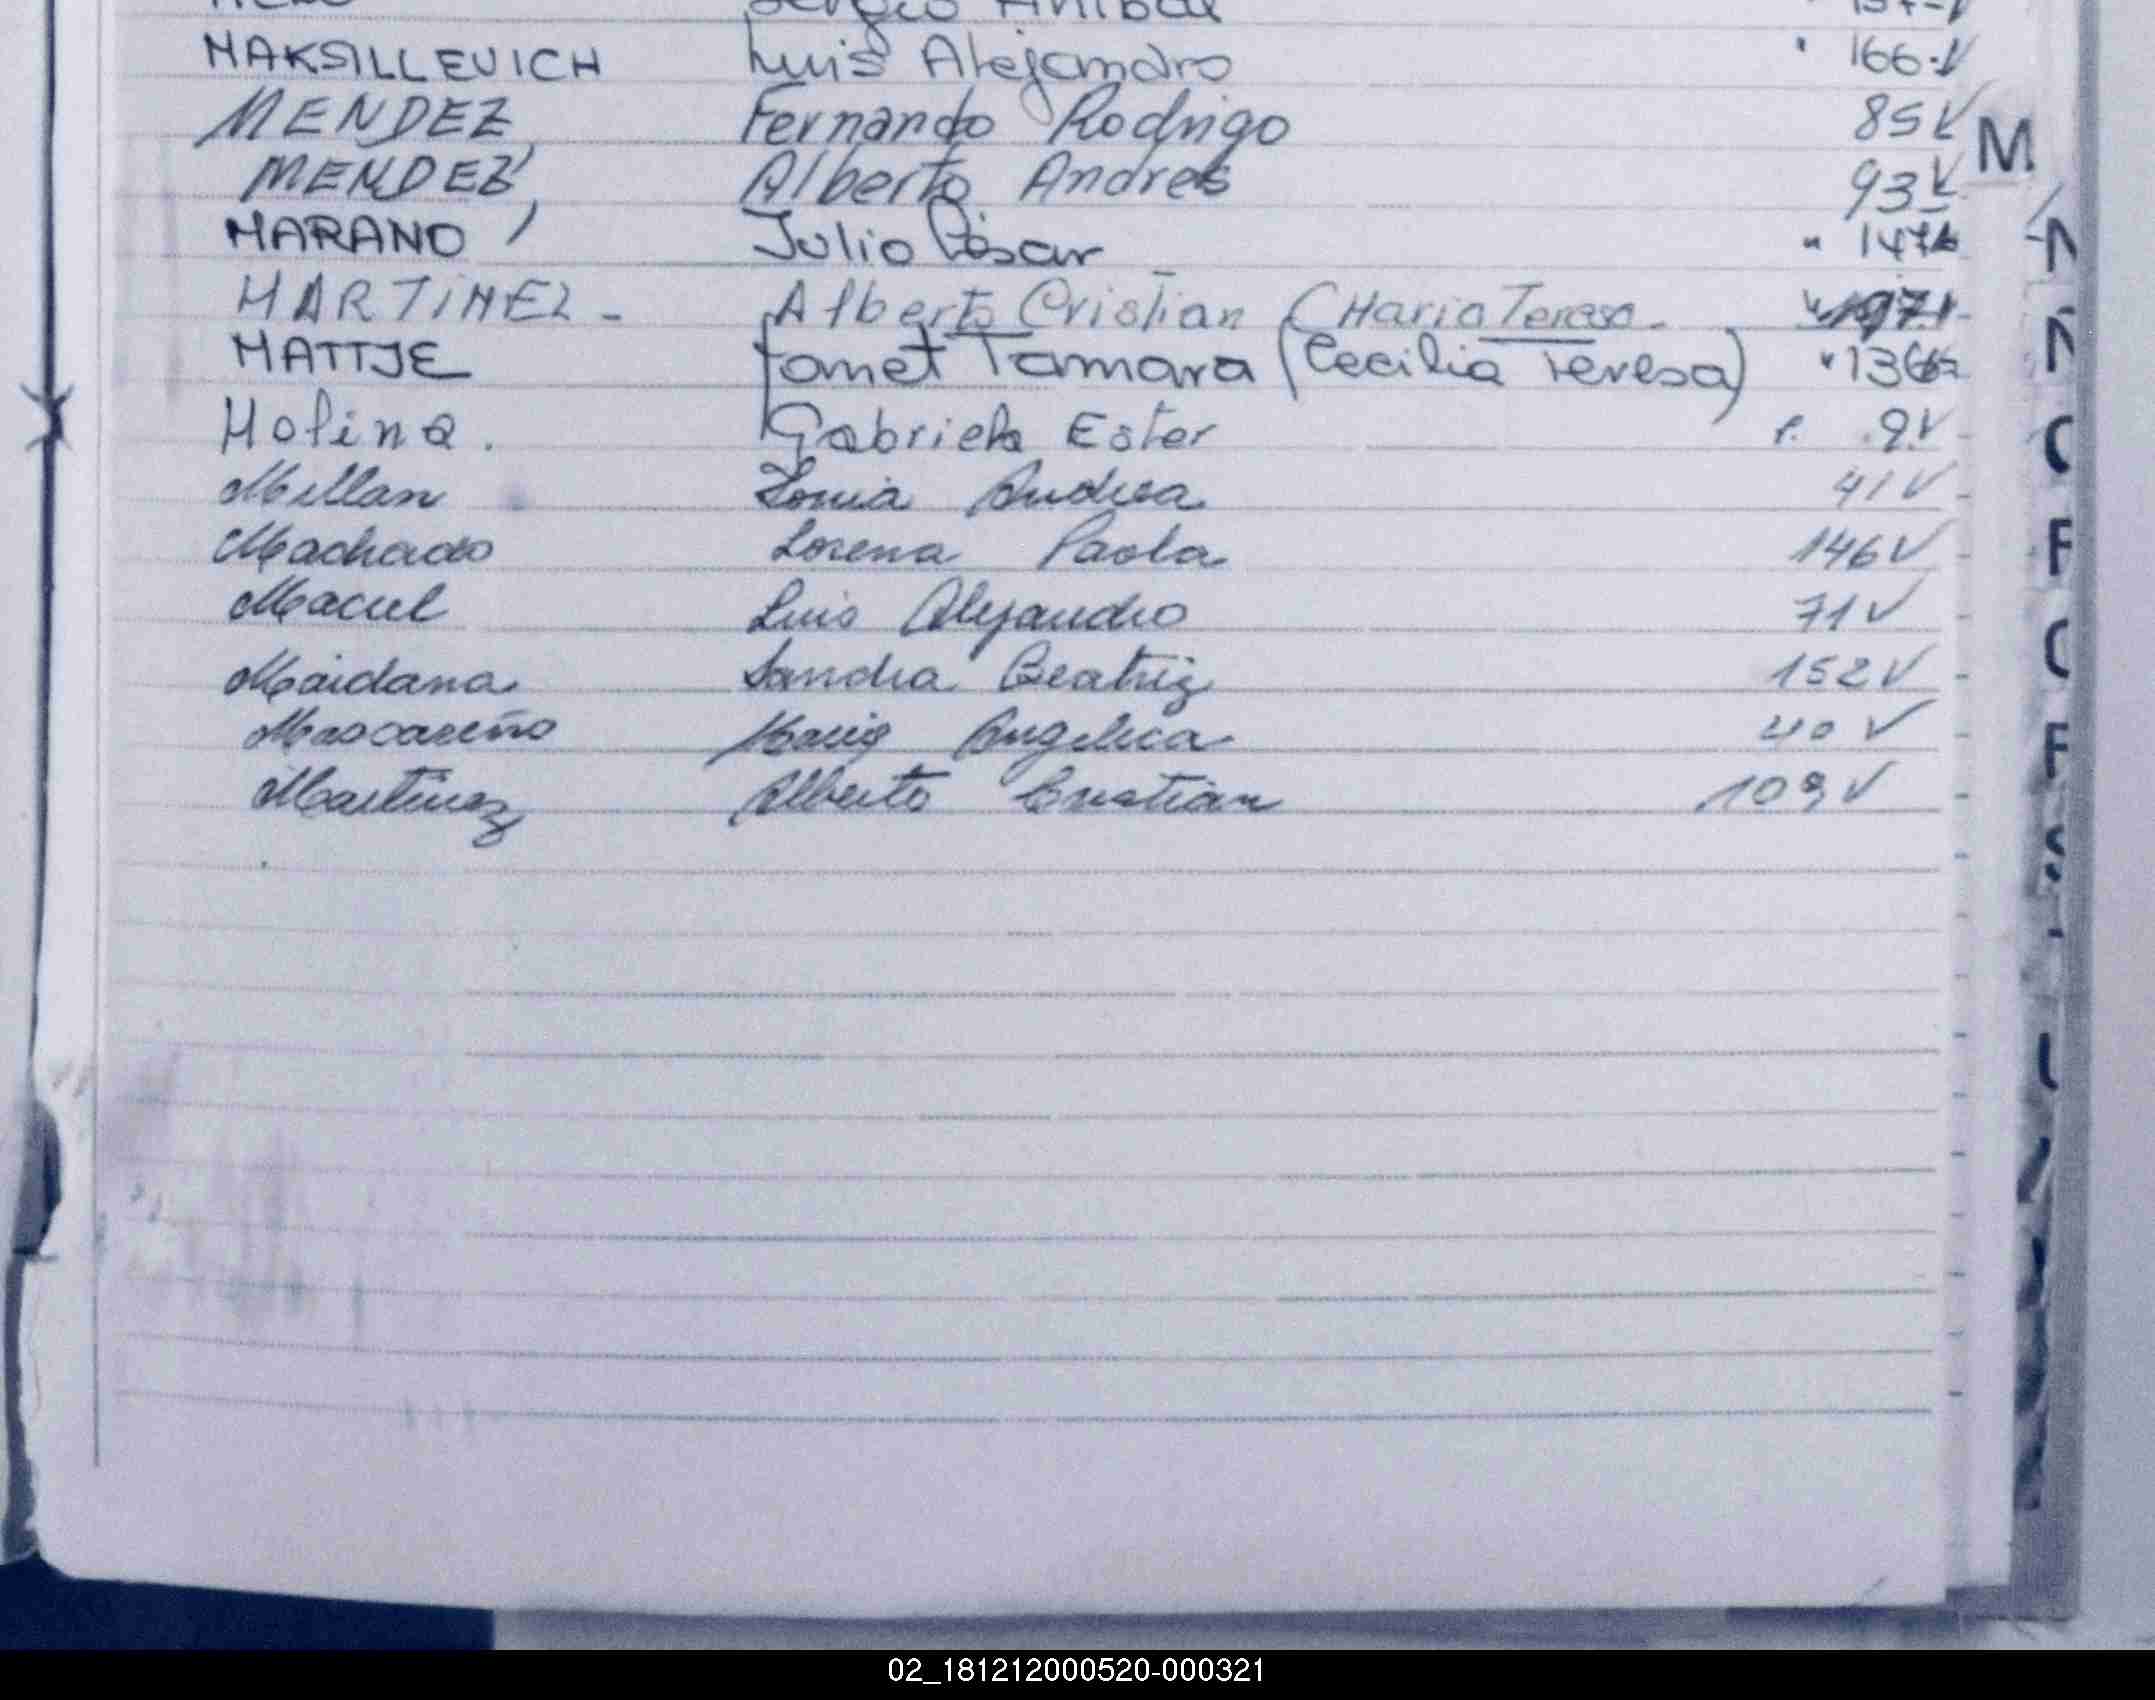 Sergio Anibal 157-V
MAKSILLEVICH Luis Alejandro " 166-V
MENDEZ, Fernando Rodrigo 85V
MENDEZ, Alberto Andres 93V
MARANO, Julio César " 147
MARTINEZ - Alberto Cristian (Maria Teresa -
MATTJE Janet Tamara (Cecilia Teresa) " 136
Molina. Gabriela Ester 9.V
Millan Sonia Andrea 41V
Machado Lorena Paola 146V
Maciel Luis Alejandro 71V
Maidana Sandra Beatriz 152V
Maria Angelica 40V
Martinez Alberto Cristian 109V
M
02_181212000520-000321